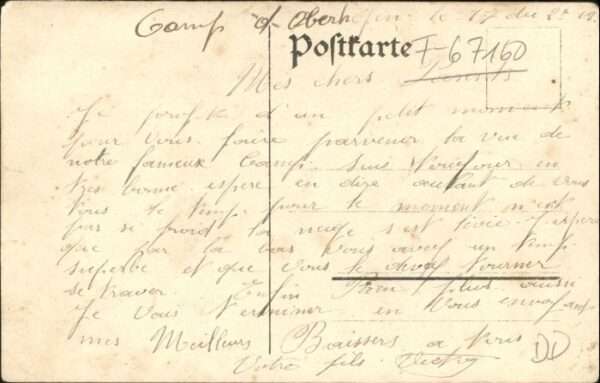 Camp d. Oberh
le 17 du 2
Postkarte F-67160
Mes chers Parents
Je profite d'un petit moment
pour vous faire parvenir la vue de
notre fameux Camp. Suis toujour en
très bonne espere en dire autant de vous
tous le temp. pour le moment n'est
pas si froid la neige s'est
que par la bas vous avez un temp
superbe et que vous le devez tourner
se traver. Enfin Rien plus aussi
Je vais terminer en vous envoyant
mes Meilleurs Baissers a tous
Votre fils
DD